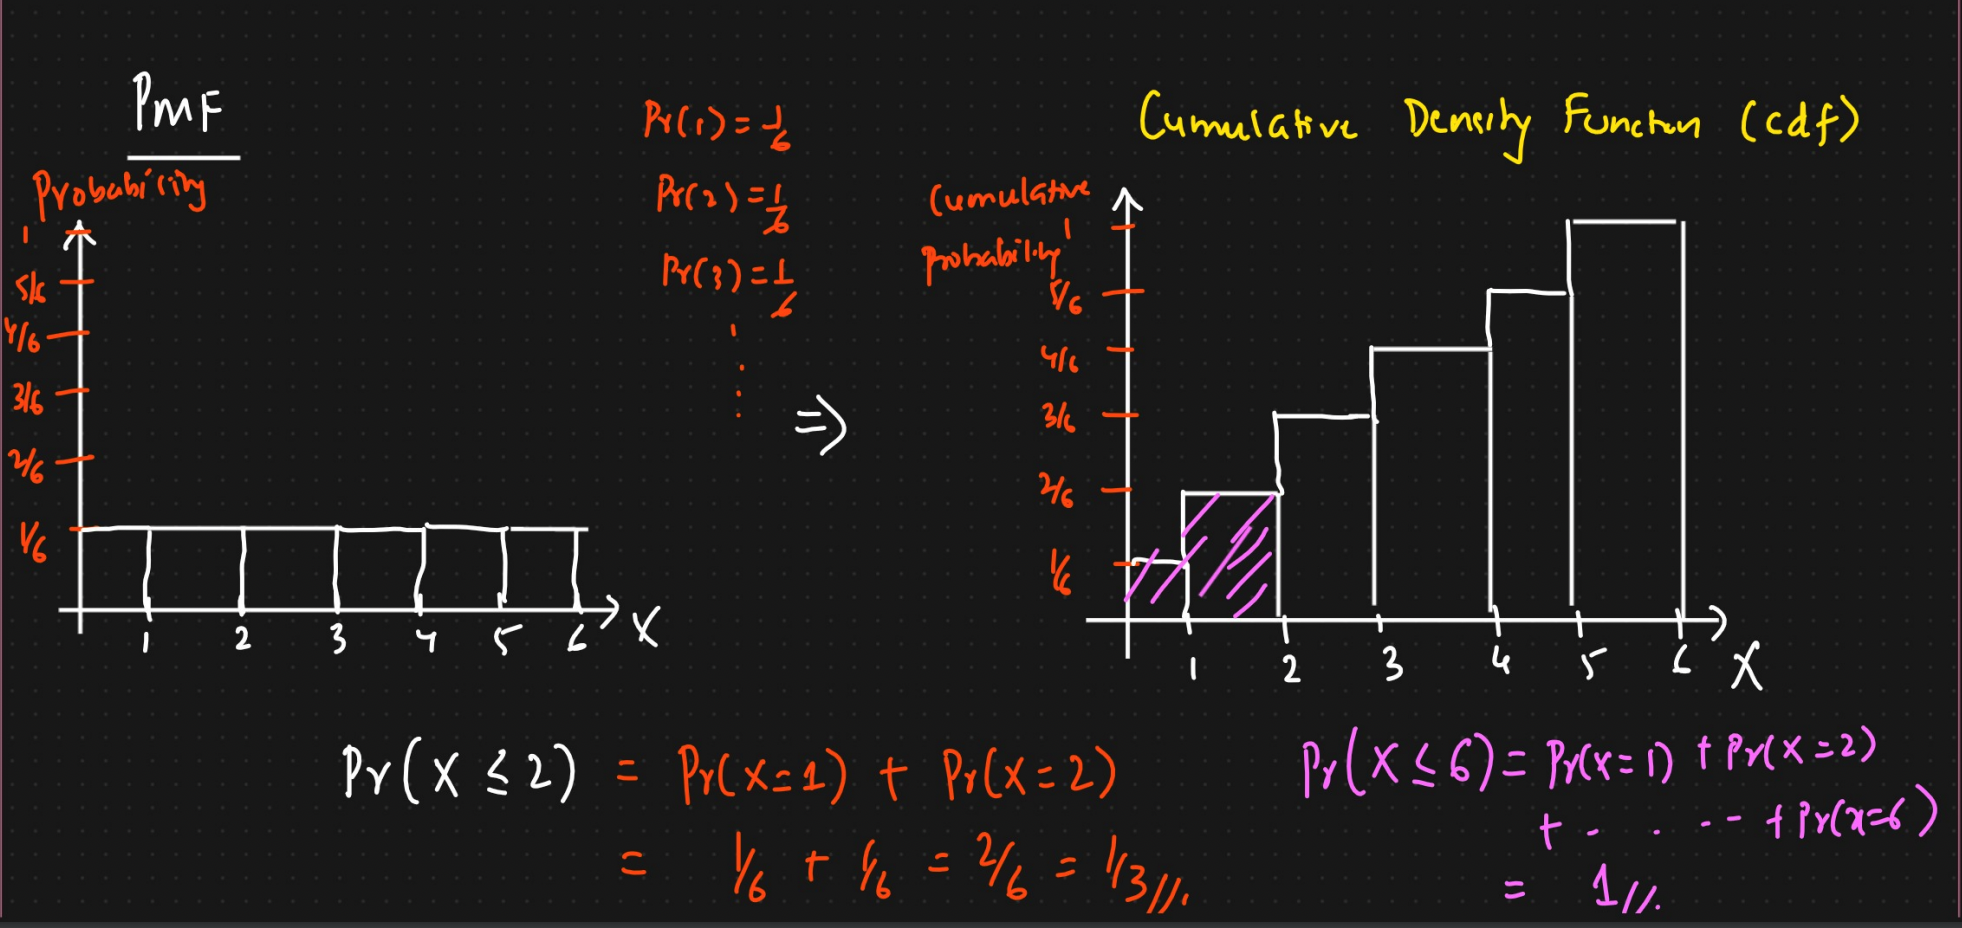 PMF
Probability
1
5/6
4/6
3/6
2/6
1/6
1 2 3 4 5 6 X
Pr(1) = 1/6
Pr(2) = 1/6
Pr(3) = 1/6
⇒
Cumulative Density Function (cdf)
Cumulative
probability
1
5/6
4/6
3/6
2/6
1/6
1 2 3 4 5 6 X
Pr(X ≤ 2) = Pr(X=1) + Pr(X=2)
= 1/6 + 1/6 = 2/6 = 1/3//.
Pr(X ≤ 6) = Pr(X=1) + Pr(X=2)
+ . . . -- + Pr(x=6)
= 1//.